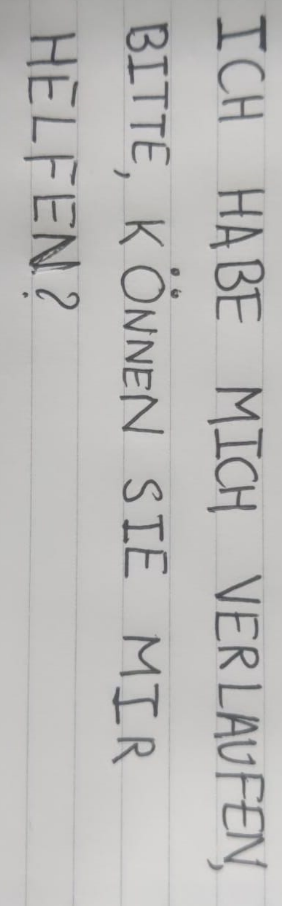 ICH HABE MICH VERLAUFEN,
BITTE, KÖNNEN SIE MIR
HELFEN?